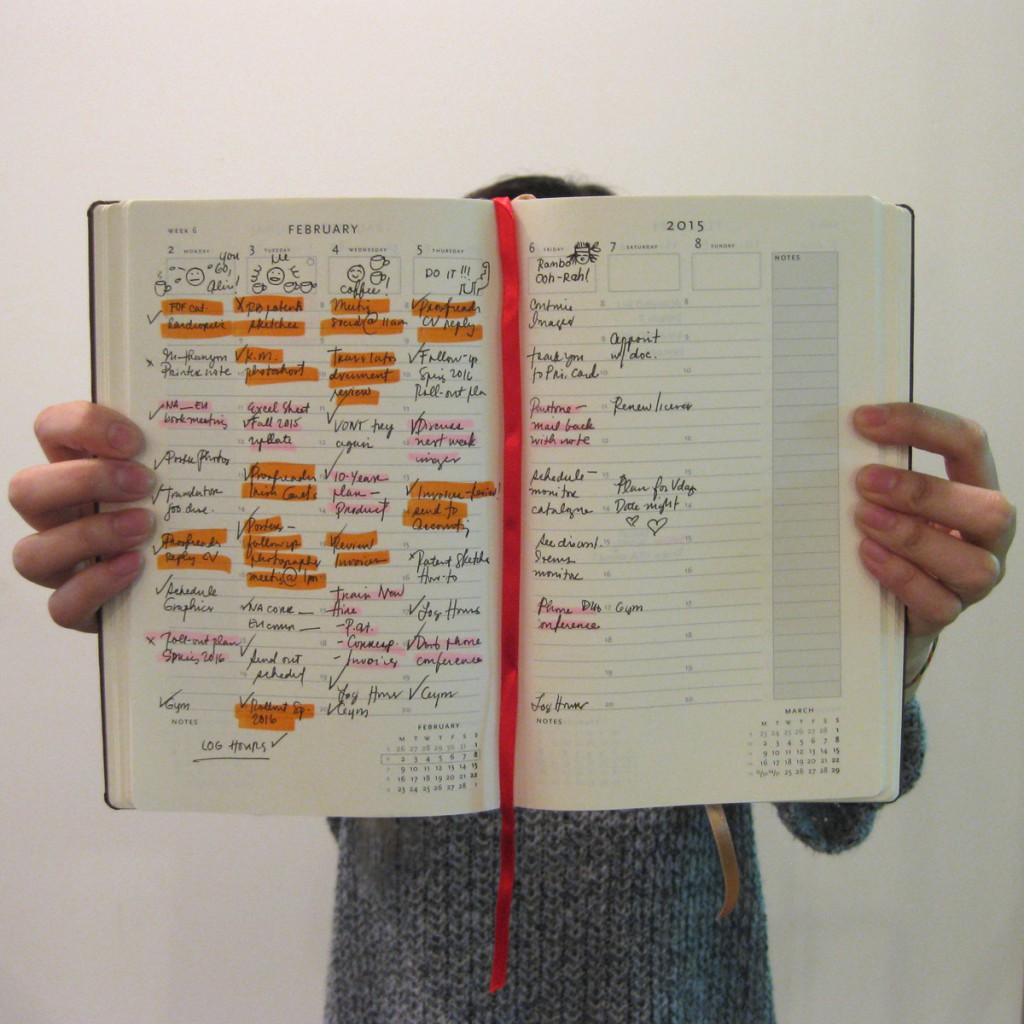 WEEK 6
FEBRUARY
2 MONDAY
you
GO,
3 TUESDAY
me
4 WEDNESDAY
coffee!
5 THURSDAY
DO IT!!!
FOF cat.
Printer note
NA_EU
book meeting
Poster Photos
Translator
job due.
Proofreads
reply CV
Schedule
Graphics
Roll-out plan
Spring 2016
Gym
patents
sketches
K.M.
photoshoot
Excel Sheet
Fall 2015
update
Proofreader
Posters -
follow up
photographs
meetg @ 1pm
NA CORR _
EU comm _
Send out
schedul
Rollout Sp.
2016
Meetig
social @ 11am
Translator
document
review
WONT try
again
10-Year
plan -
Product
Review
Invoices
Train New
Hire
- P.at.
- Invoices
Log Hours
Gym
Proofreads
CV reply
Follow-up
Sprig 2016
Roll-out pla
Discuss
next week
Invoice-
send to
Accounting
Patent Sketch
How-to
Log Hours
phone
conference
Gym
NOTES
LOG HOURS
FEBRUARY
M T W T F S S
26 27 28 29 30 31 1
2 3 4 5 6 7 8
9 10 11 12 13 14 15
16 17 18 19 20 21 22
23 24 25 26 27 28 1
2015
6 FRIDAY
Rambo
Ooh-Rah!
7 SATURDAY
8 SUNDAY
NOTES
Images
thank you
to Pri. card
Pantone -
mail back
with note
schedule -
monitor
catalogue
See discont.
Items
monitor
Phone
conference
Log Hours
Appoint
w/ doc.
Renew license
Plan for Vday
Date night
Gym
NOTES
MARCH
M T W T F S S
23 24 25 26 27 28 1
2 3 4 5 6 7 8
9 10 11 12 13 14 15
16 17 18 19 20 21 22
23/30 24/31 25 26 27 28 29